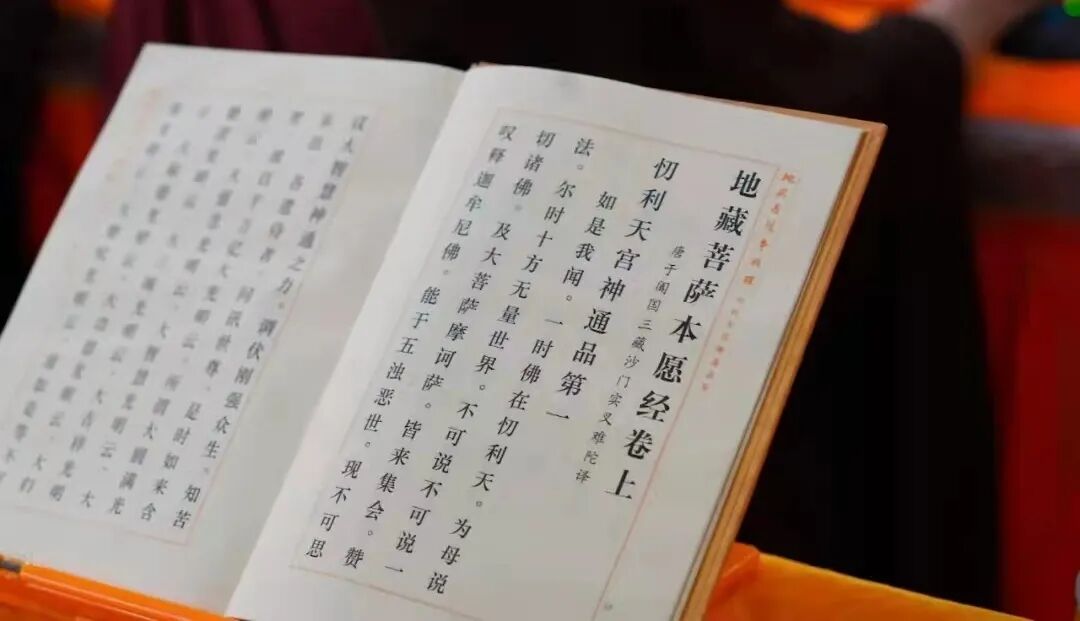 地藏菩萨本愿经卷上
唐于阗国三藏沙门实叉难陀译
忉利天宫神通品第一
如是我闻。一时佛在忉利天。为母说
法。尔时十方无量世界。不可说不可说一
切诸佛。及大菩萨摩诃萨。皆来集会。赞
叹释迦牟尼佛。能于五浊恶世。现不可思
议大智慧神通之力。调伏刚强众生。知苦
乐法。各遣侍者。问讯世尊。是时如来含
笑。放百千万亿大光明云。所谓大圆满光
明云。大慈悲光明云。大智慧光明云。大
般若光明云。大三昧光明云。大吉祥光明